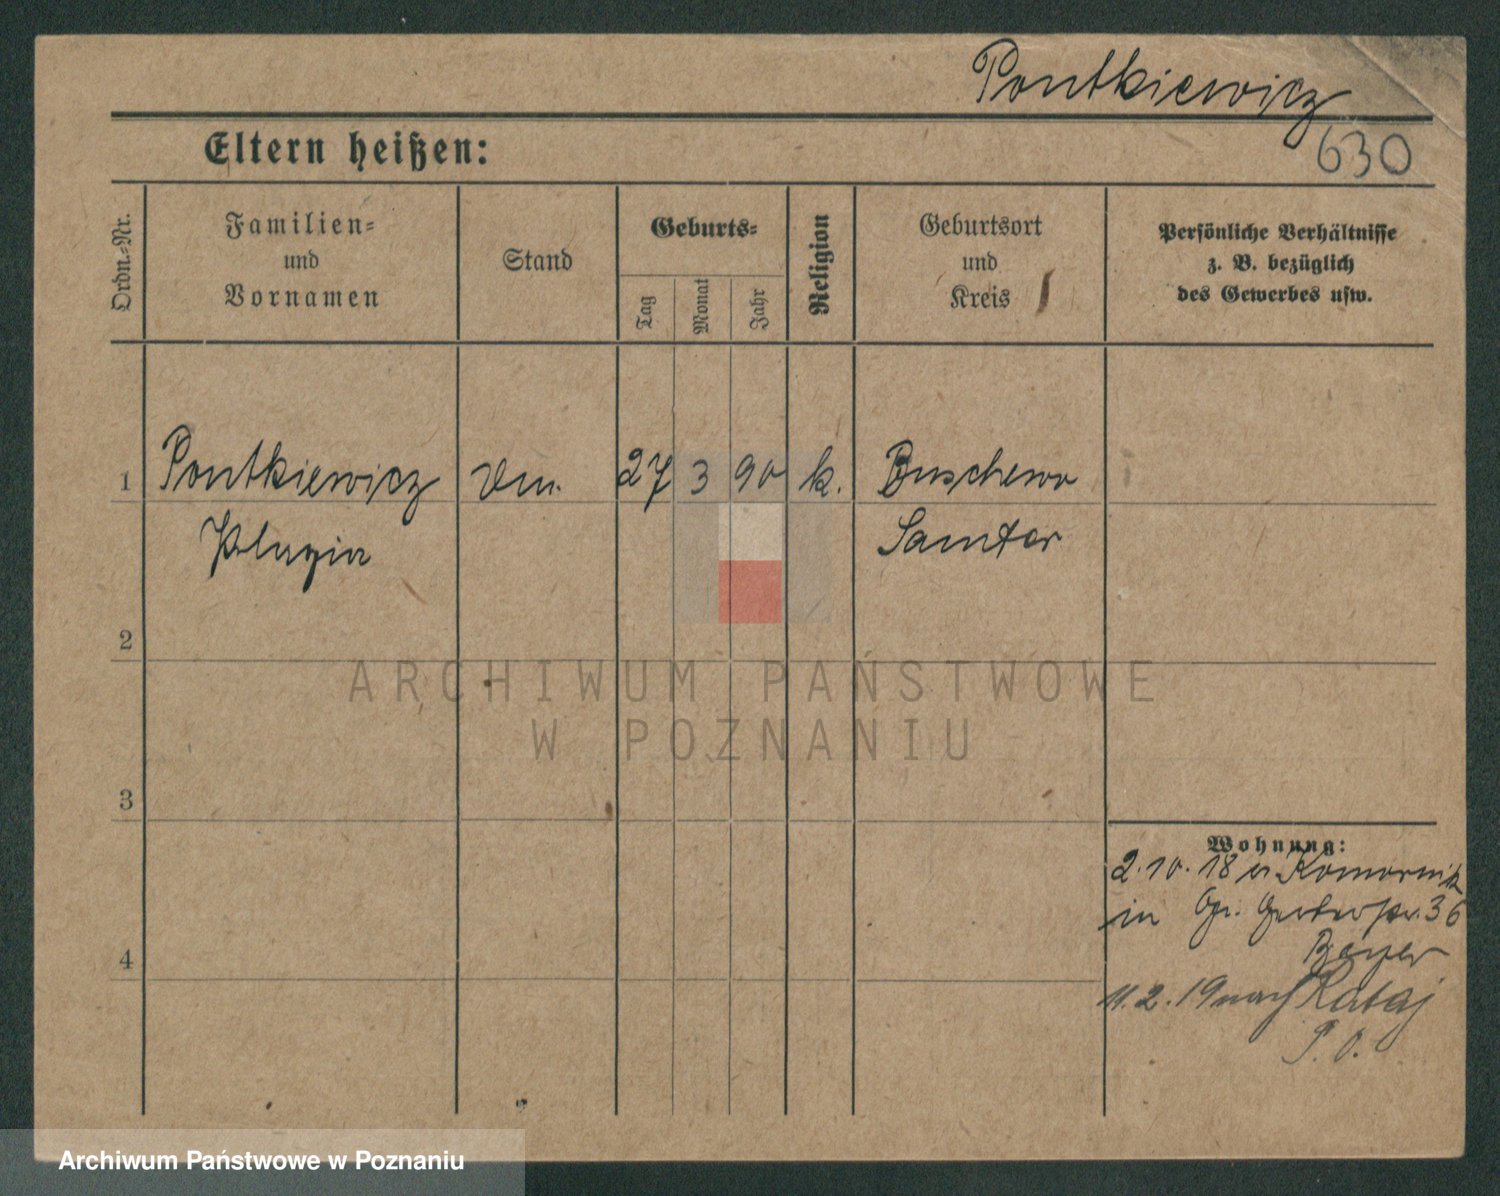 Pontkiewicz
630
Eltern heißen:
Ordn.-Nr.
Familien-
und
Vornamen
Stand
Geburts-
Tag
Monat
Jahr
Religion
Geburtsort
und
Kreis
Persönliche Verhältnisse
z. B. bezüglich
des Gewerbes usw.
1 Pontkiewicz 27 3 90 k. Buschewo
Samter
2
3
4
ARCHIWUM PAŃSTWOWE
W POZNANIU
Wohnung:
2.10.18 Komornik
in 36
Beyer
11.2.19 nach Rataj
P. O.
Archiwum Państwowe w Poznaniu